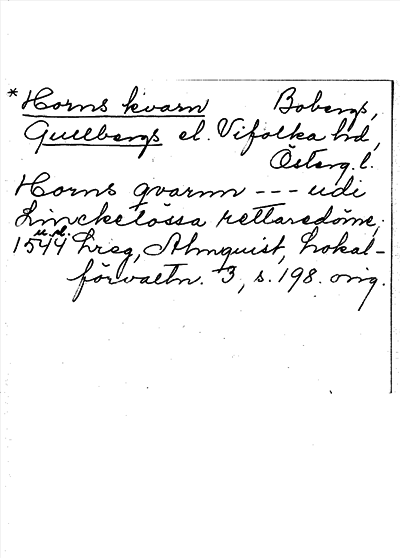 *Horns kvarn Bobergs,
Gullbergs el. Vifolka hd,
Österg. l.
Horns qvarnn --- udi
Linckelössa rettaredöme;
1544 u.d. Lreg, Almquist, Lokal-
förvaltn. 3, s. 198. orig.